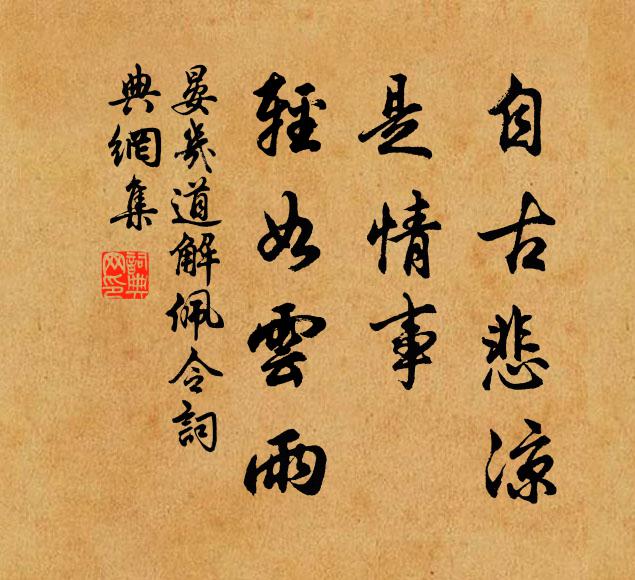 自古悲涼
是情事
輕如雲雨
晏幾道解佩令詞
典網集
詞典網印